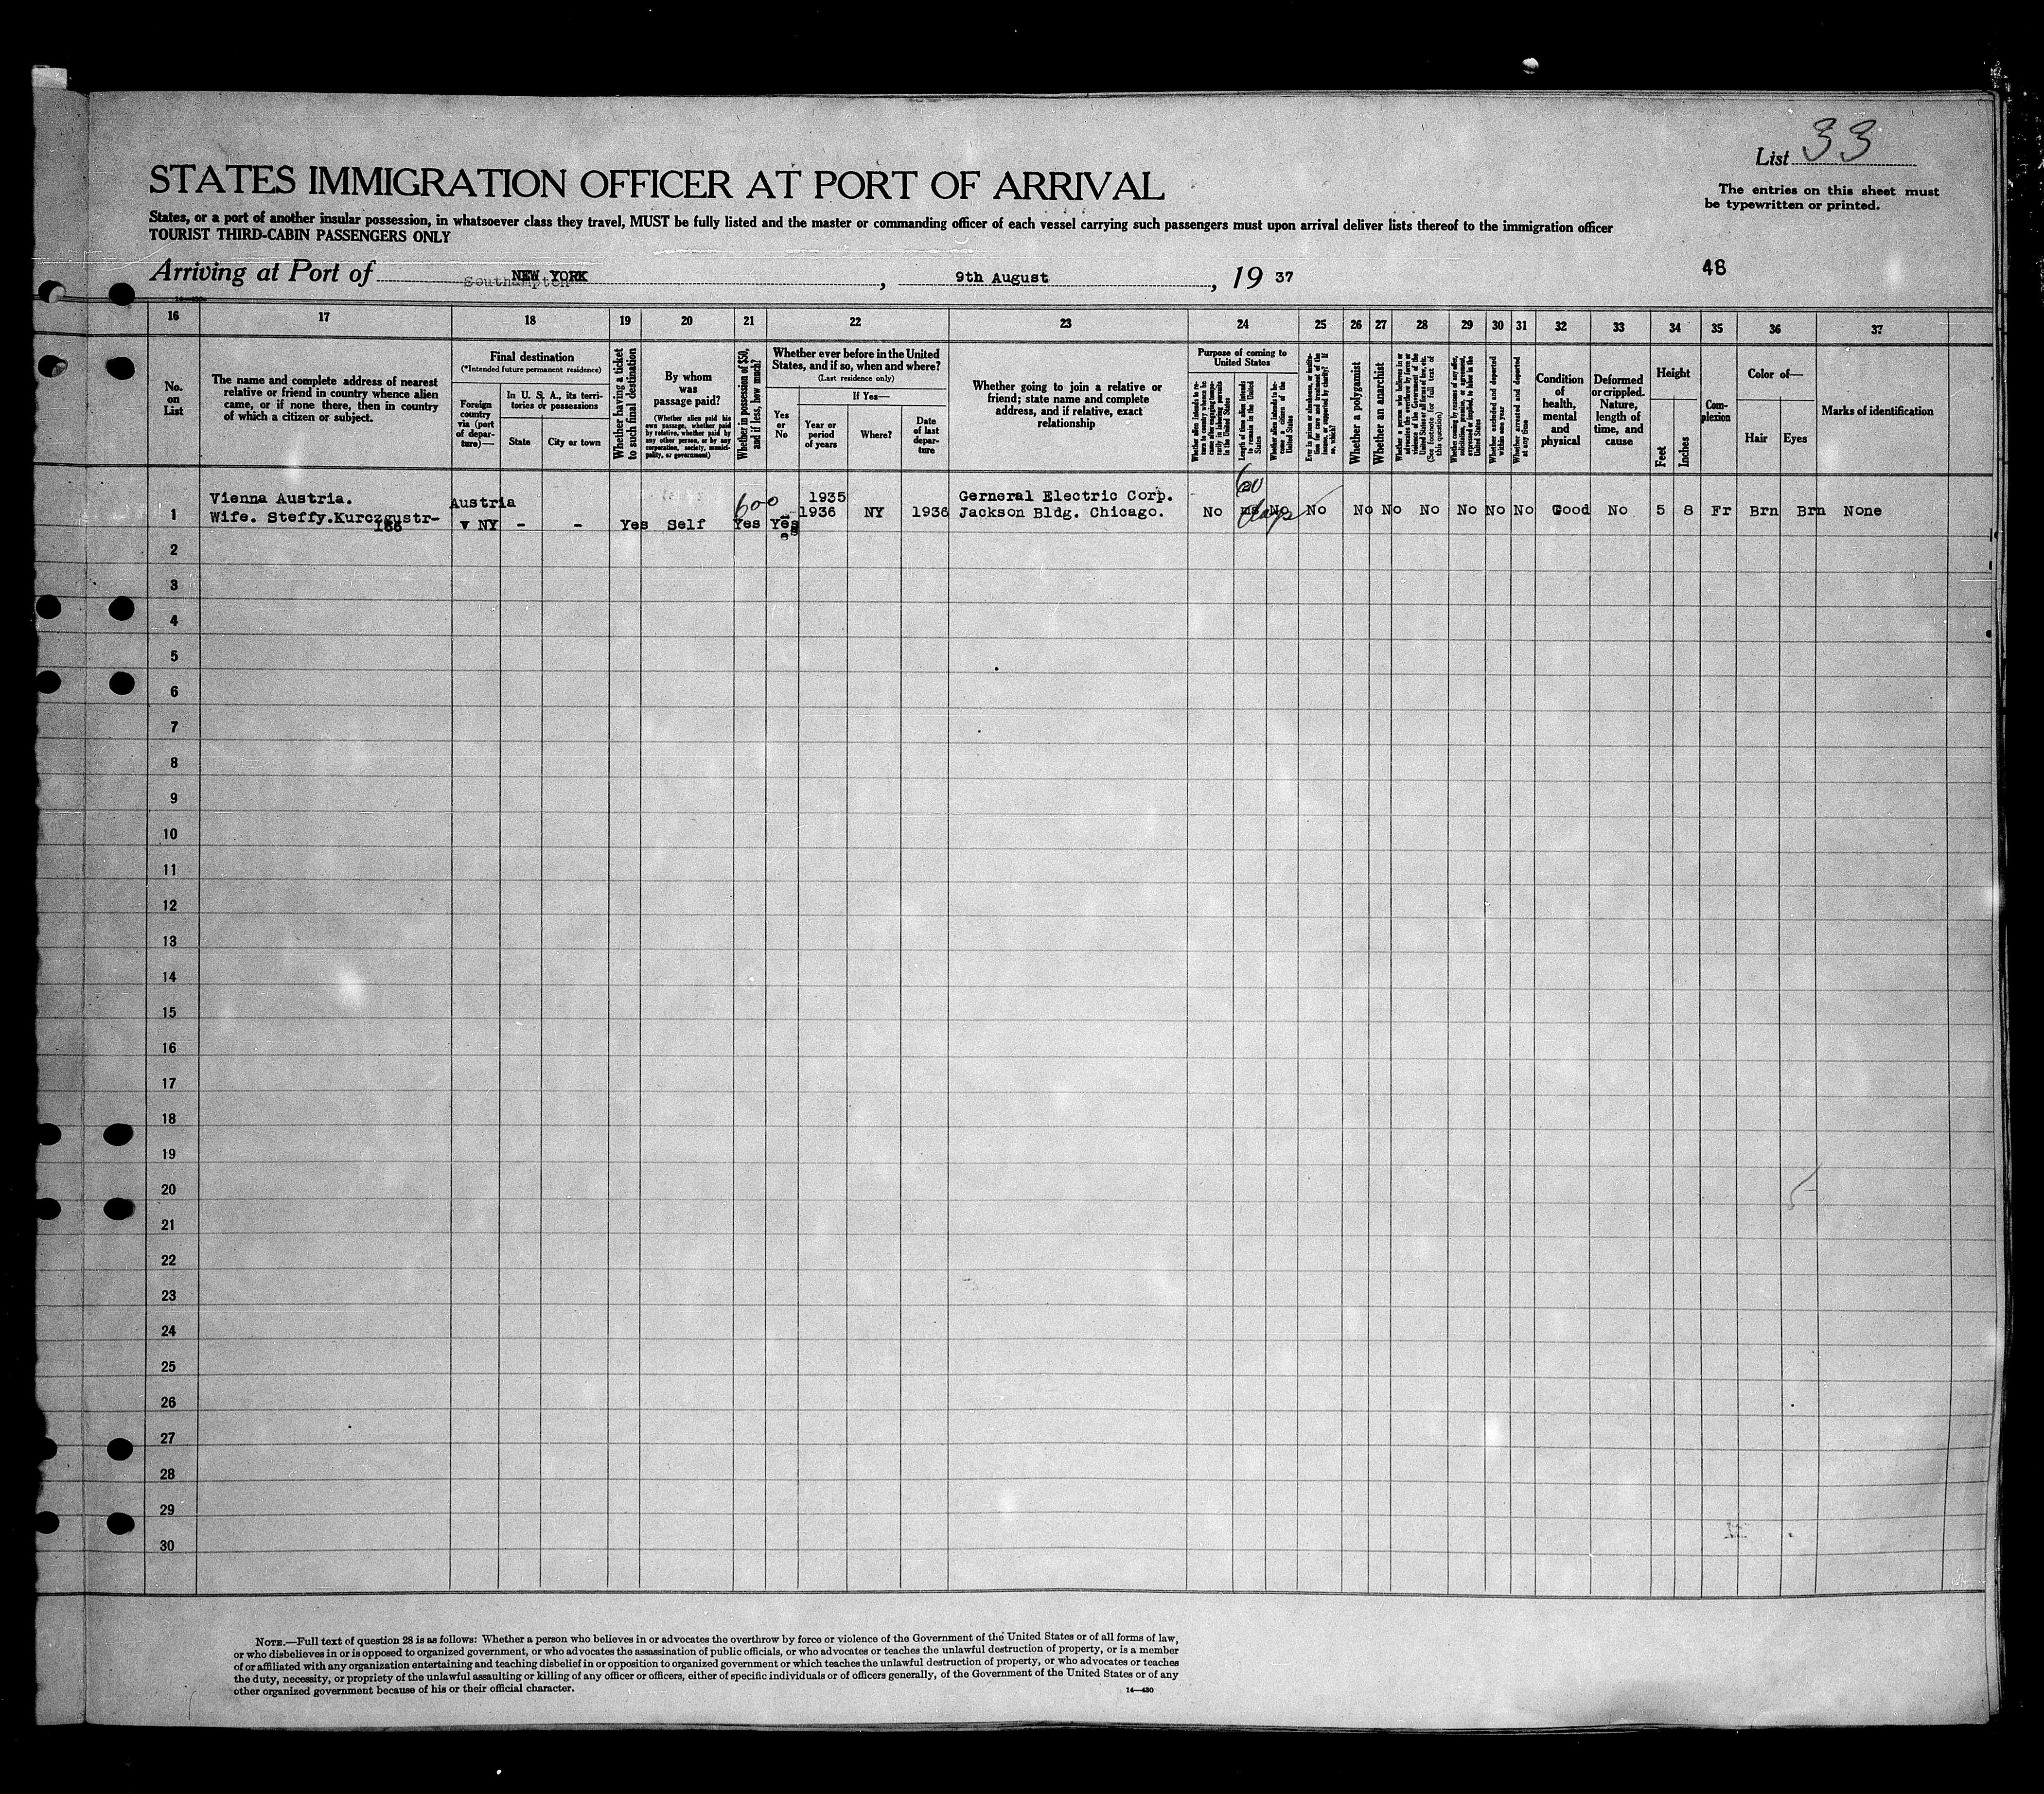 List 33
STATES IMMIGRATION OFFICER AT PORT OF ARRIVAL
The entries on this sheet must
be typewritten or printed.
States, or a port of another insular possession, in whatsoever class they travel, MUST be fully listed and the master or commanding officer of each vessel carrying such passengers must upon arrival deliver lists thereof to the immigration officer
TOURIST THIRD-CABIN PASSENGERS ONLY
Arriving at Port of NEW YORK, 9th August, 19 37
Southampton
48
16 17 18 19 20 21 22 23 24 25 26 27 28 29 30 31 32 33 34 35 36 37
No.
on
List
The name and complete address of nearest
relative or friend in country whence alien
came, or if none there, then in country
of which a citizen or subject.
Final destination
(*Intended future permanent residence)
Foreign
country
via (port
of depar-
ture)—
In U. S. A., its terri-
tories or possessions
State
City or town
Whether having a ticket
to such final destination
By whom
was
passage paid?
(Whether alien paid his
own passage, whether paid
by relative, whether paid by
any other person, or by any
corporation, society, munici-
pality, or government)
Whether in possession of $50,
and if less, how much?
Whether ever before in the United
States, and if so, when and where?
(Last residence only)
Yes
or
No
If Yes—
Year or
period
of years
Where?
Date
of last
depar-
ture
Whether going to join a relative or
friend; state name and complete
address, and if relative, exact
relationship
Purpose of coming to
United States
Length of time alien intends
to remain in the United
States
Whether alien intends to be-
come a citizen of the
United States
Whether a polygamist
Whether an anarchist
(See footnote for full text of
this question)
Whether excluded and deported
within one year
Whether arrested and deported
at any time
Condition
of
health,
mental
and
physical
Deformed
or crippled.
Nature,
length of
time, and
cause
Height
Feet
Inches
Com-
plexion
Color of—
Hair
Eyes
Marks of identification
1
Vienna Austria.
Wife. Steffy.Kurczgustr-
186
Austria
v NY - - Yes Self
600
Yes Yes
1935
1936 NY 1936
Gerneral Electric Corp.
Jackson Bldg. Chicago.
No
60
days
No No No No No No No No Good No 5 8 Fr Brn Brn None
2
3
4
5
6
7
8
9
10
11
12
13
14
15
16
17
18
19
20
21
22
23
24
25
26
27
28
29
30
NOTE.—Full text of question 28 is as follows: Whether a person who believes in or advocates the overthrow by force or violence of the Government of the United States or of all forms of law,
or who disbelieves in or is opposed to organized government, or who advocates the assassination of public officials, or who advocates or teaches the unlawful destruction of property, or is a member
of or affiliated with any organization entertaining and teaching disbelief in or opposition to organized government or which teaches the unlawful destruction of property, or who advocates or teaches
the duty, necessity, or propriety of the unlawful assaulting or killing of any officer or officers, either of specific individuals or of officers generally, of the Government of the United States or of any
other organized government because of his or their official character.
14—430